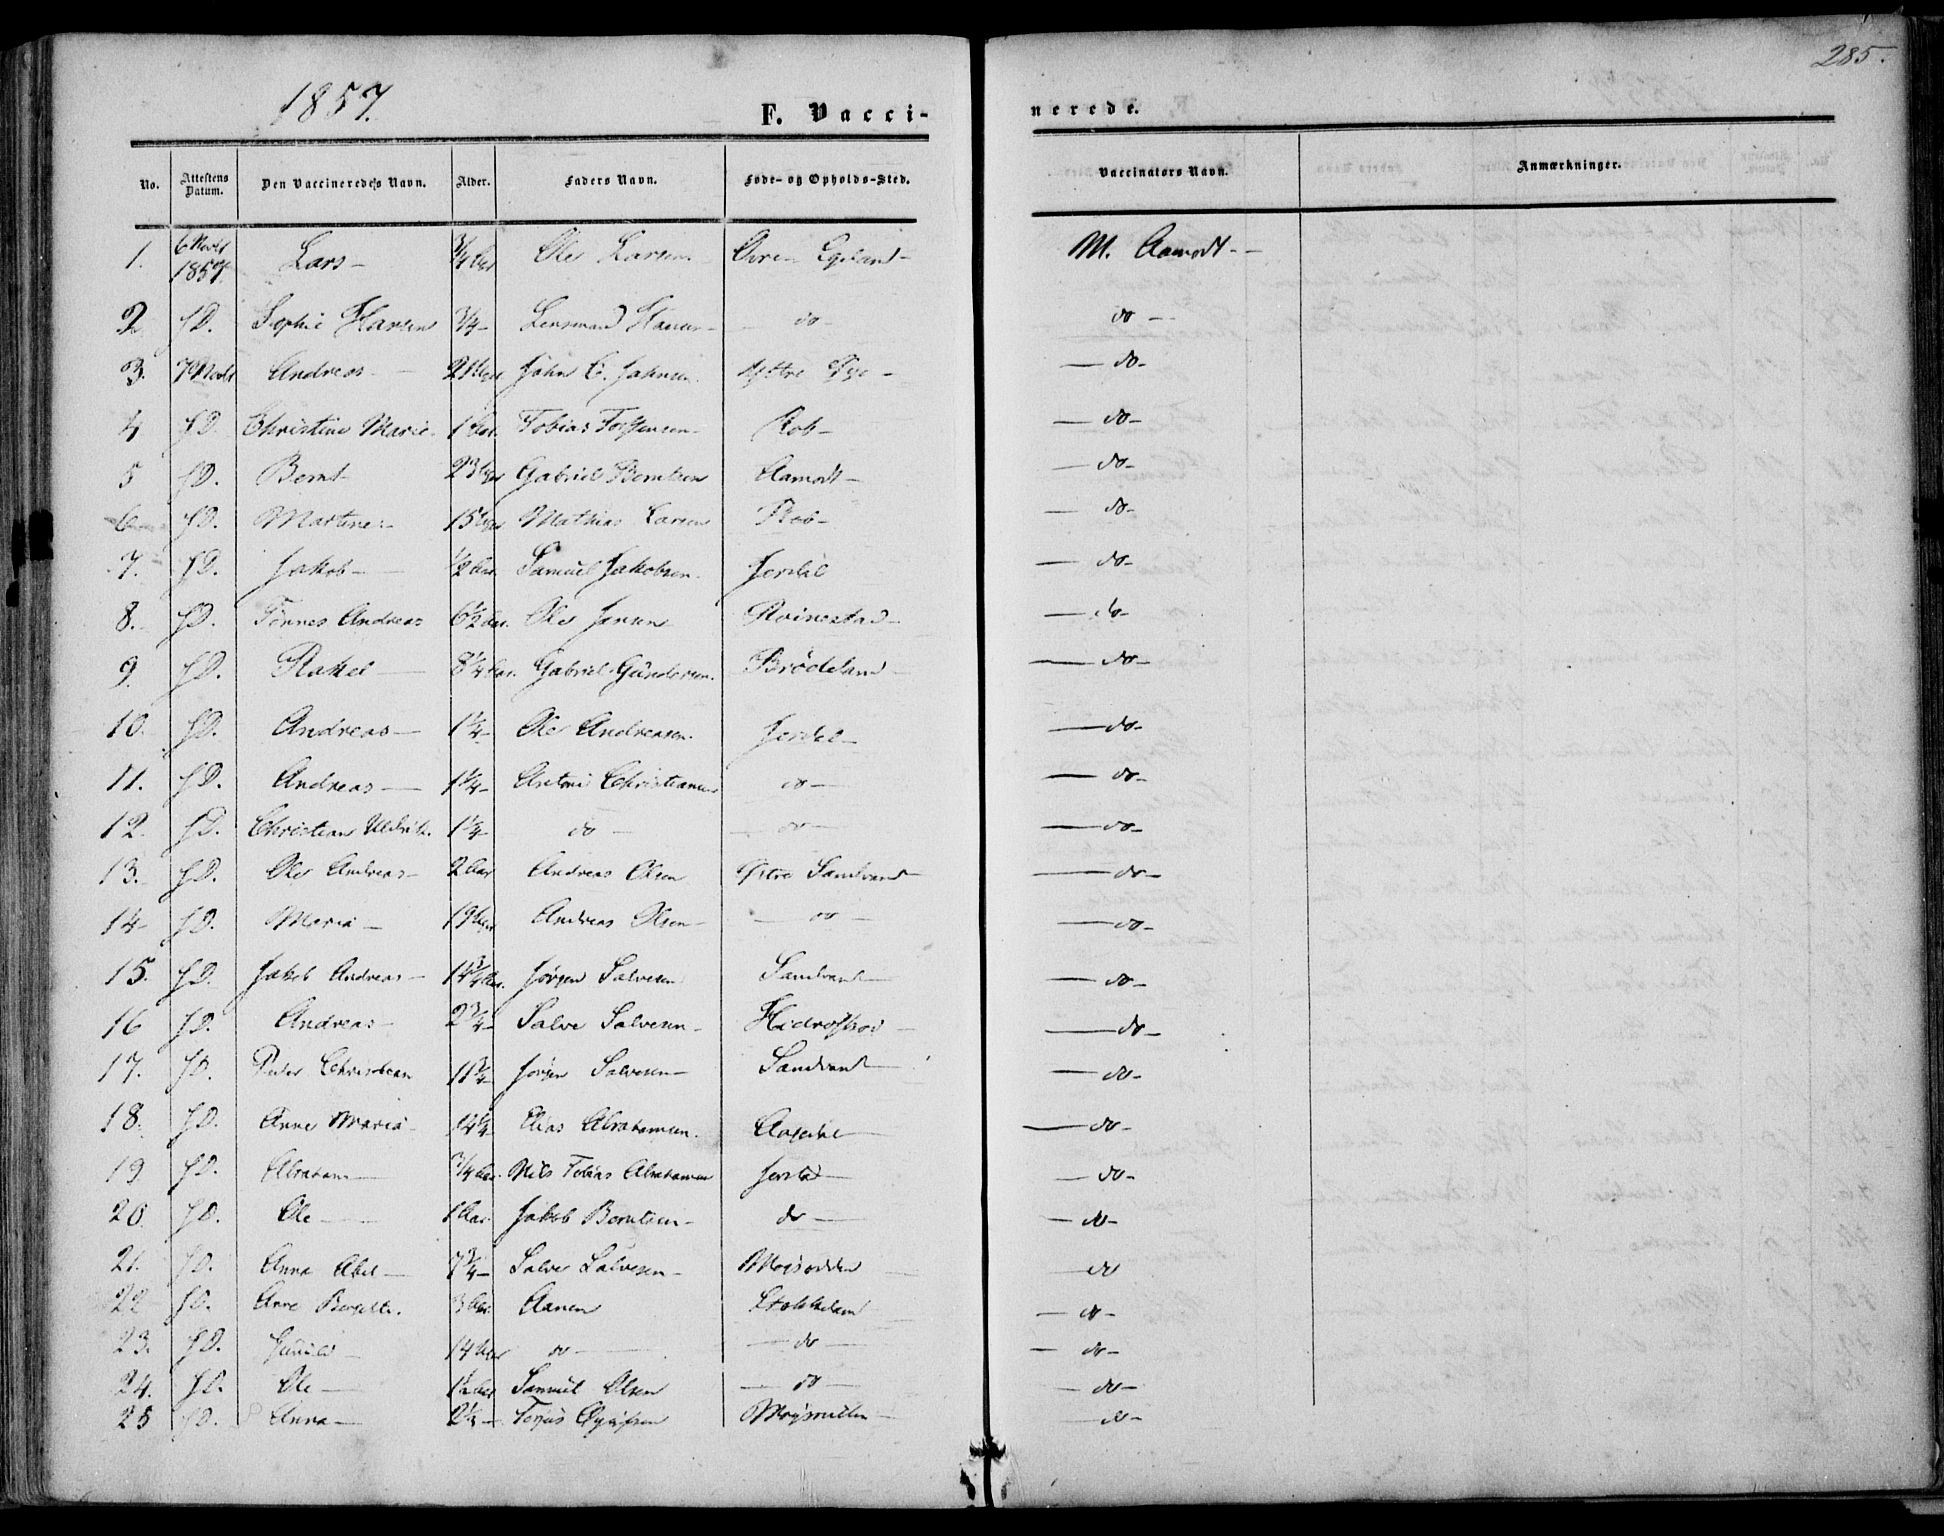 285.
1857.
F. Vacci-
nerede.
No. Attestens Datum. Den Vaccineredes Navn. Alder. Faders Navn. Føde- og Opholds-Sted. Vaccinators Navn. Anmærkninger.
1. 6 Novbr 1857. Lars - 3/4 Aar Ole Larsen Øvre Egeland - M. Aamodt -
2 SD. Sophie Hansen 3/4 - Lensmand Hansen - do - do -
3. 7 Novbr Andreas - John C. Johnsen - do -
4 SD. Christine Marie - 1 Aar. Tobias - do -
5 SD. Bernt 23 Gabriel Berntsen Aamodt - do -
6 SD. Martine - 15 Mathias Larsen - do -
7. SD. Jakob - 1/2 Aar. Samuel Jakobsen - Jerdal - do -
8. SD. Tønnes Andreas 6 1/2 Aar. Ole Jensen - do -
9 SD. Rakel - 8 1/4 Aar. Gabriel Gundersen. Brødeland - do -
10. SD. Andreas - 1 1/4 - Ole Andreasen. Jerdal - do -
11. SD. Andreas - 1 1/4 - Antoni Christiansen do - do -
12. SD. Christian 1 1/4 - do - do - do -
13. SD. Ole Andreas - 2 Aar Andreas Olsen Østre Sandvand - do -
14 SD. Maria - 19 Andreas Olsen - do - do -
15. SD. Jakob Andreas - 14 3/4 Aar. Jørgen Salvesen Sandvand - do -
16 SD. Andreas - 2 3/4 - Salve Salvesen - do -
17. SD. Peder Christian 11 3/4 - Jørgen Salvesen - Sandvand - do -
18. SD. Anne Maria - 14 1/4 Elias Abrahamsen. Aagedal - do -
19 SD. Abraham - 3/4 Aar. Nils Tobias Abrahamsen Jerdal - do -
20. SD. Ole - 1 Aar. Jakob Berntsen - do - do -
21. SD. Anna Abel - 7 3/4 - Salve Salvesen - Moisodden do
22 SD. Anne Bergitte. 3 Aar. Aanen Stokkeland - do -
23. SD. Gunild - 14 do - do - do -
24. SD. Ole - Samuel Olsen - do - do -
25 SD. Anna - Terjus - do -